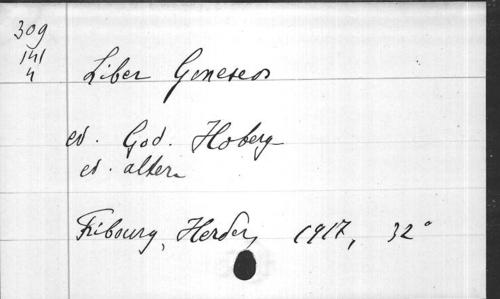 309
141
4
Liber Geneseos
ed. God. Hoberg
ed. altera
Fribourg, Herder, 1917, 32°